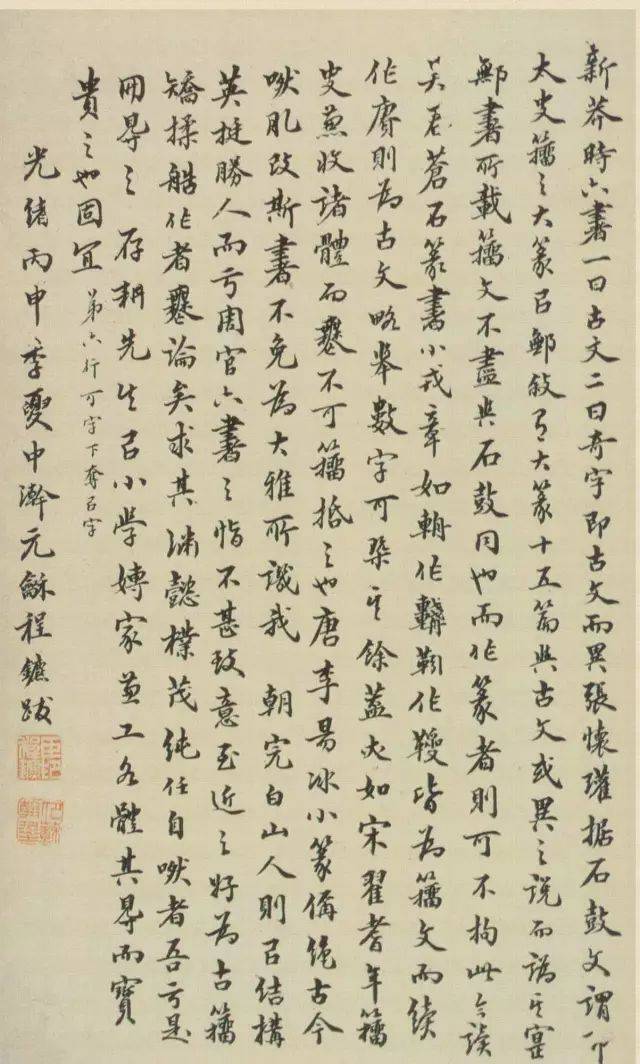 新莽時六書一曰古文二曰奇字即古文而異張懷瓘据石鼓文謂即
太史籀之大篆㠯鄦敘有大篆十五篇與古文或異之說而譌其寔
鄦書所載籀文不盡與石鼓同也而作篆者則可不拘此今讀
吳𢗅蒼石篆書小戎章如輈作 靷作 皆為籀文而續
作賡則為古文略舉數字可槩其餘蓋亦如宋翟耆年籀
史兼收諸體而 不可籀抵之也唐李昜冰小篆偁絶古今
然肊改斯書不免為大雅所譏我 朝完白山人則㠯結搆
英挺勝人而于周官六書之恉不甚致意至近之好為古籀
矯揉 作者 論矣求其淵懿樸茂純任自然者吾于是
冊㝵之 存耕先生㠯小學專家兼工各體其㝵而寶
貴之也固宜 第六行可字下奪㠯字
光緒丙申季夏中澣元龢程鑣跋